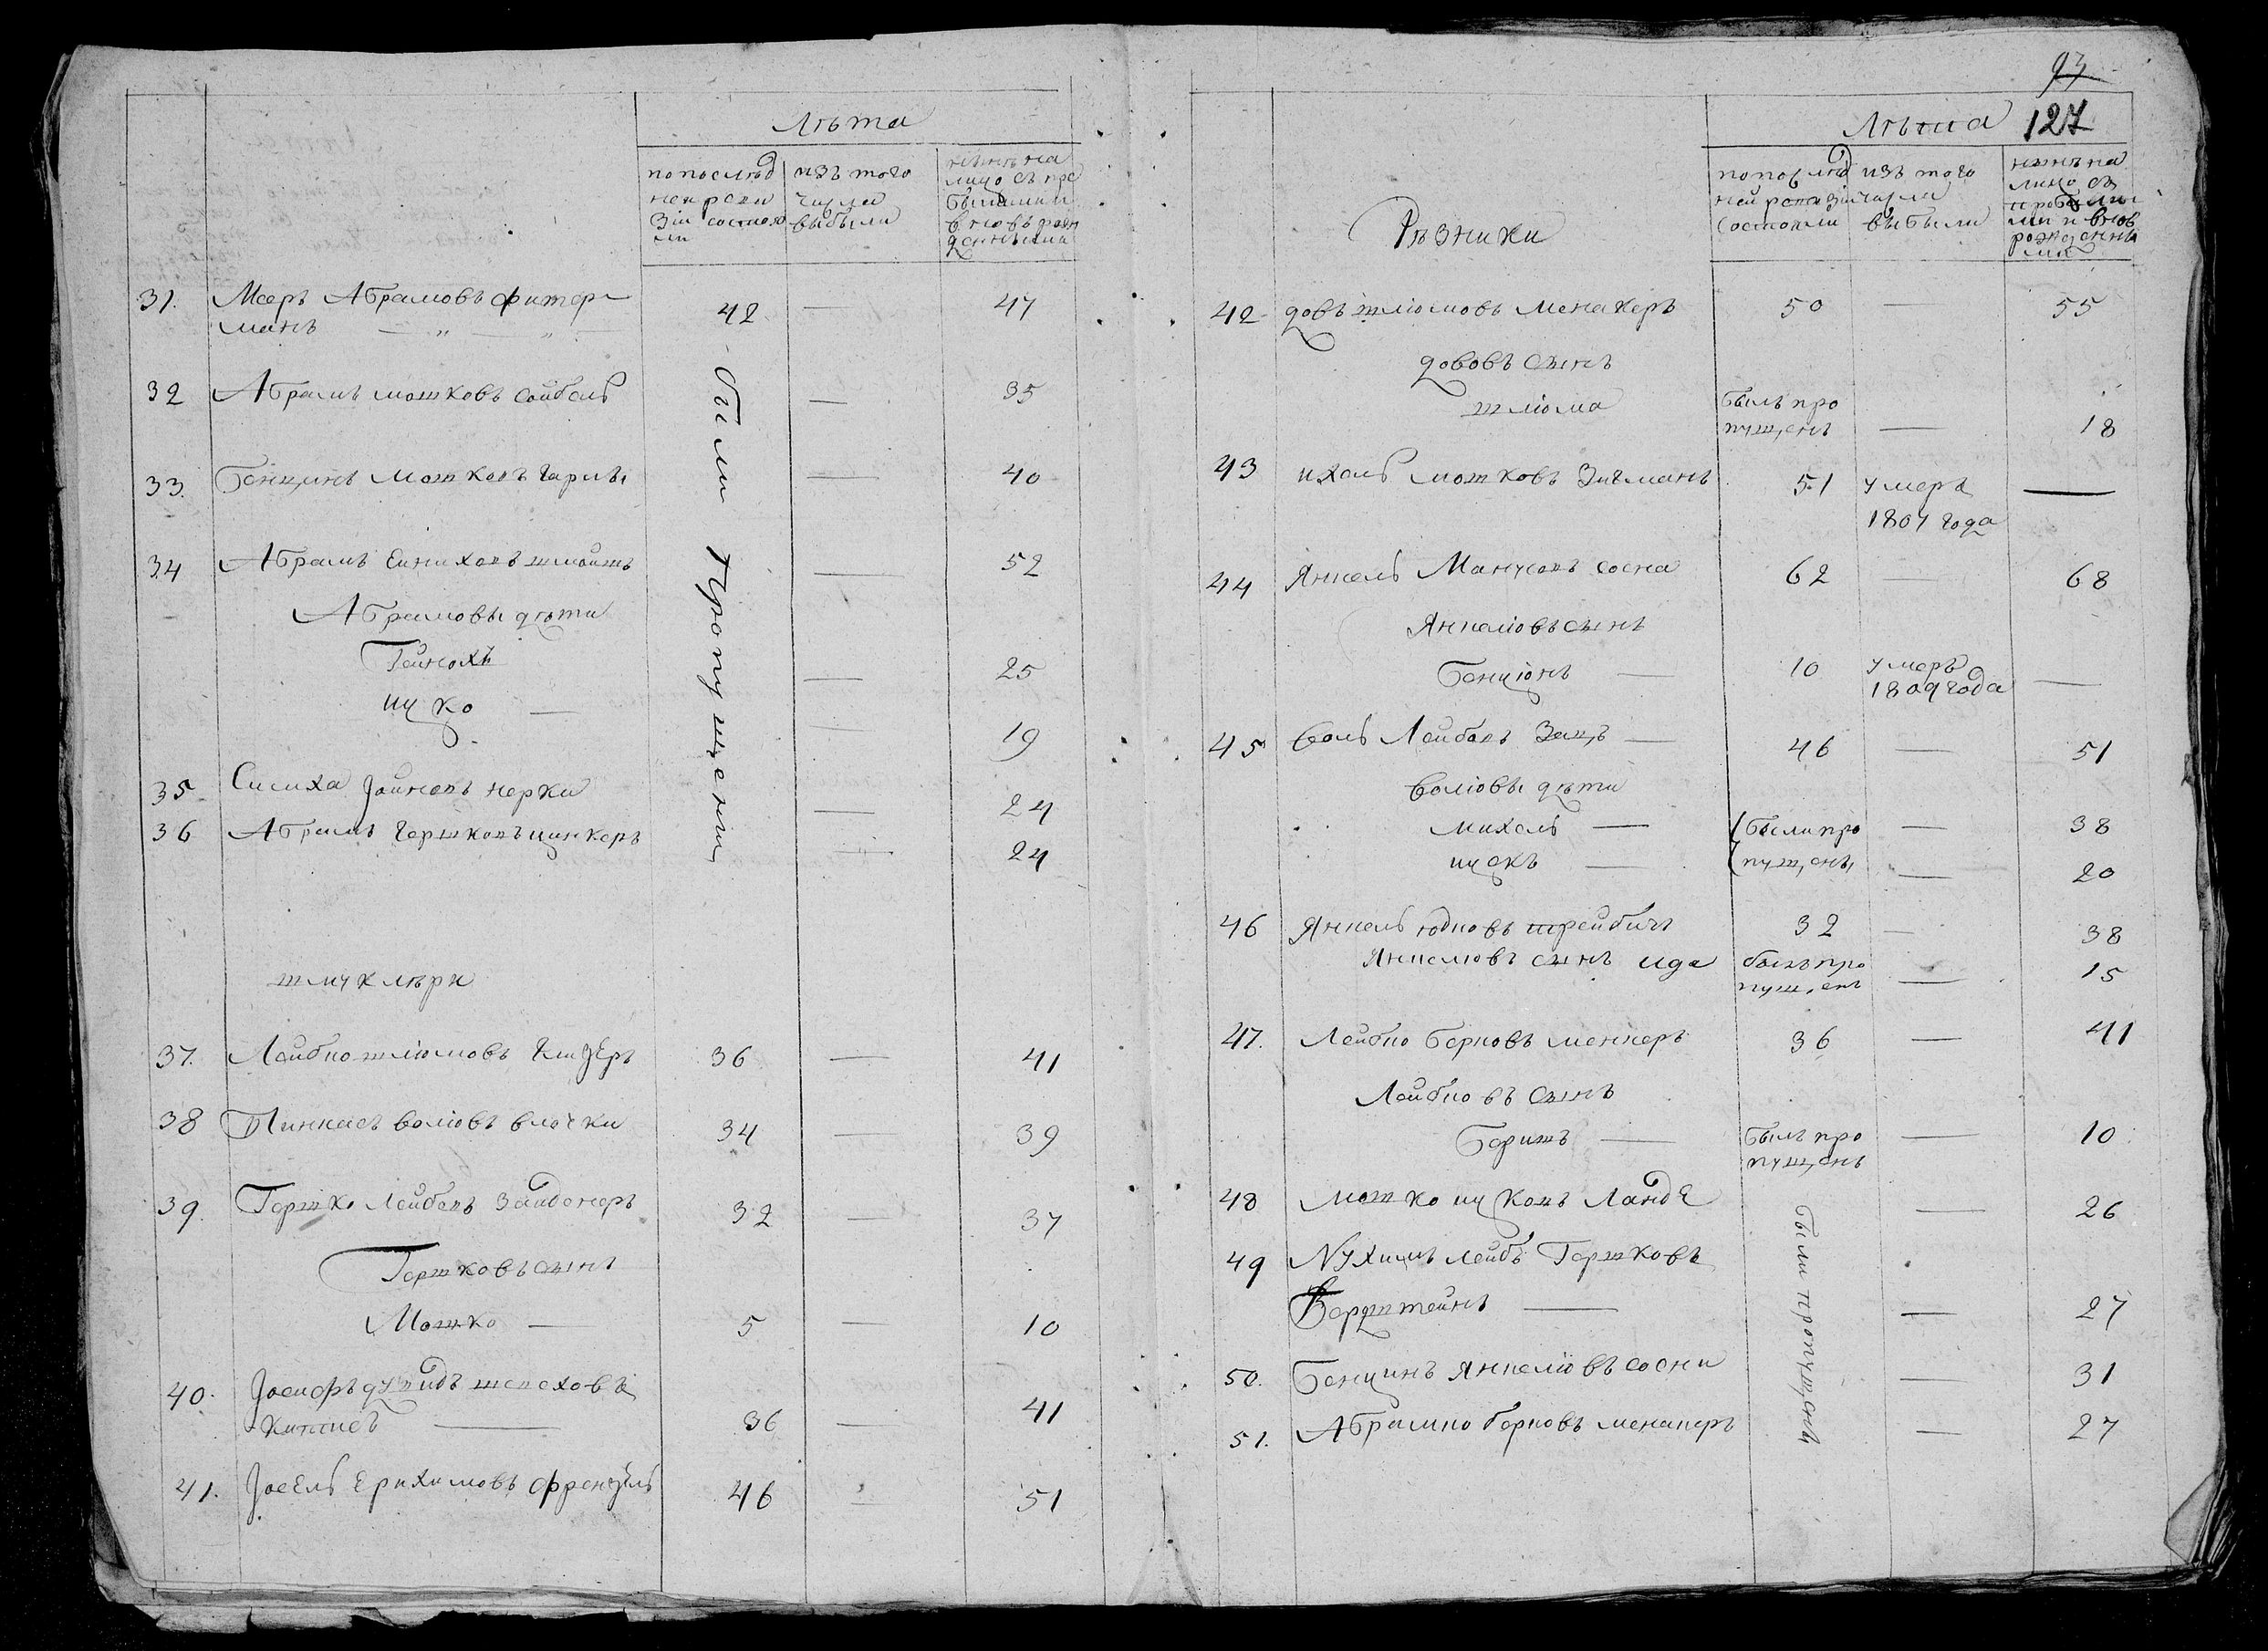 Лѣта
по послѣд
ней реви
зіи состоя
ли
изъ того
числа
выбыли
нынѣ на
лицо съ при
былыми и
вновь рож
денными
31. Мееръ Абрамовъ фитер-
манъ 42 — 47
были пропущены
32 Абрамъ мошковъ сойбель — 35
33. Бенцинъ Мошковъ — 40
34 Абрамъ Ейниховъ — 52
Абрамовы дѣти
Гейнохъ — 25
ицко — 19
35 Симха — 24
36 Абрамъ гершковъ цинкеръ — 24
шмуклѣри
37. Лейбко шліомовъ 36 — 41
38 Пинкасъ воліовъ влочки 34 — 39
39. Гершко Лейбовъ Зайденеръ 32 — 37
Гершковъ сынъ
Мошко — 5 — 10
40. Іосифъ дувидъ
36 — 41
41. Іосель Ерухимовъ френдель 46 — 51
93
127
Лѣта
по послѣд
ней ревизіи
состояли
изъ того
числа
выбыли
нынѣ на
лицо съ
прибылы
ми и внов
рожденны
ми
Рѣзники
42 довъ шліомовъ менакеръ 50 — 55
дововъ сынъ
шліома былъ про
пущенъ — 18
43 ихель мошковъ Зигманъ 51 умеръ —
1807 года
44 Янкель Манусовъ сосна 62 — 68
Янкеліовъ сынъ
Бенціонъ — 10 умеръ
1809 года —
45 воль Лейбовъ Зацъ — 46 — 51
воліовы дѣти
михель — были про — 38
ицекъ — пущены — 20
46 Янкель юдковъ 32 — 38
Янкеліовъ сынъ ида былъ про — 15
пущенъ
47. Лейбко Берковъ менкеръ 36 — 41
Лейбковъ сынъ
Боришъ — былъ про — 10
пущенъ
были пропущены
48 мошко ицковъ Ландѣ — 26
49 Нухимъ Лейбъ Гершковъ
Бернштейнъ — — 27
50. Бенцинъ Янкеліовъ сосни — 31
51. Абрамко берковъ менакеръ — 27